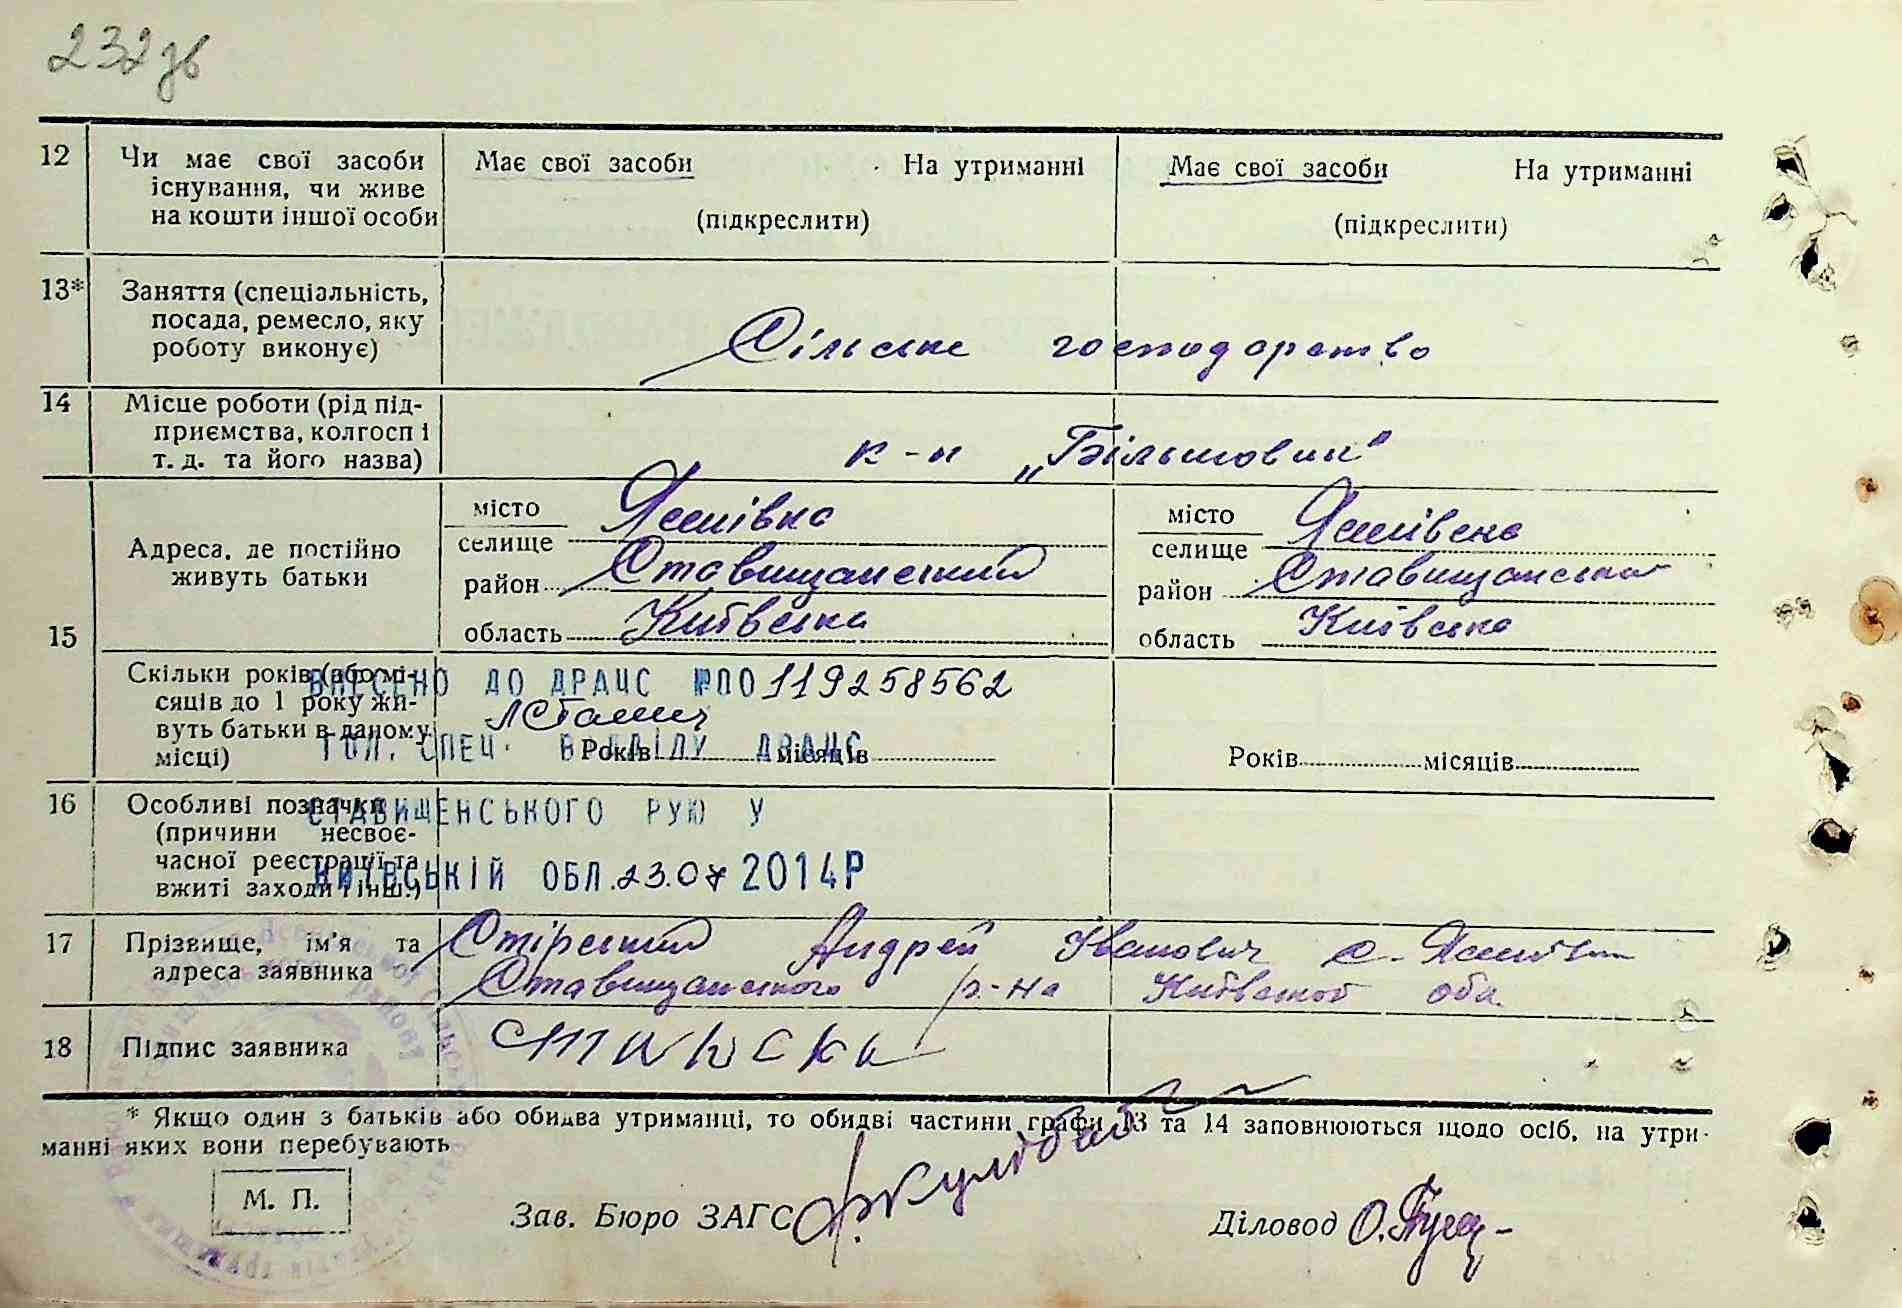 232зв
12 Чи має свої засоби існування, чи живе на кошти іншої особи
Має свої засоби На утриманні
(підкреслити)
Має свої засоби На утриманні
(підкреслити)
13* Заняття (спеціальність, посада, ремесло, яку роботу виконує)
Сільське господарство
14 Місце роботи (рід підприємства, колгосп і т. д. та його назва)
к-п „Більшовик"
15 Адреса, де постійно живуть батьки
місто
селище
район Ставищанський
область Київська
місто
селище
район Ставищанський
область Київська
Скільки років (або місяців до 1 року живуть батьки в даному місці)
Років місяців
Років місяців
ВНЕСЕНО ДО ДРАЦС №ПО 119258562
ГОЛ. СПЕЦ. ВІДДІЛУ ДРАЦС
СТАВИЩЕНСЬКОГО РУЮ У
КИЇВСЬКІЙ ОБЛ. 23.07 2014Р
16 Особливі позначки (причини несвоєчасної реєстрації та вжиті заходи і інш.)
17 Прізвище, ім'я та адреса заявника
Андрей Іванович с.
Ставищанського р-на Київської обл.
18 Підпис заявника
* Якщо один з батьків або обидва утриманці, то обидві частини графи 13 та 14 заповнюються щодо осіб, на утри-
манні яких вони перебувають
М. П.
Зав. Бюро ЗАГС
Діловод